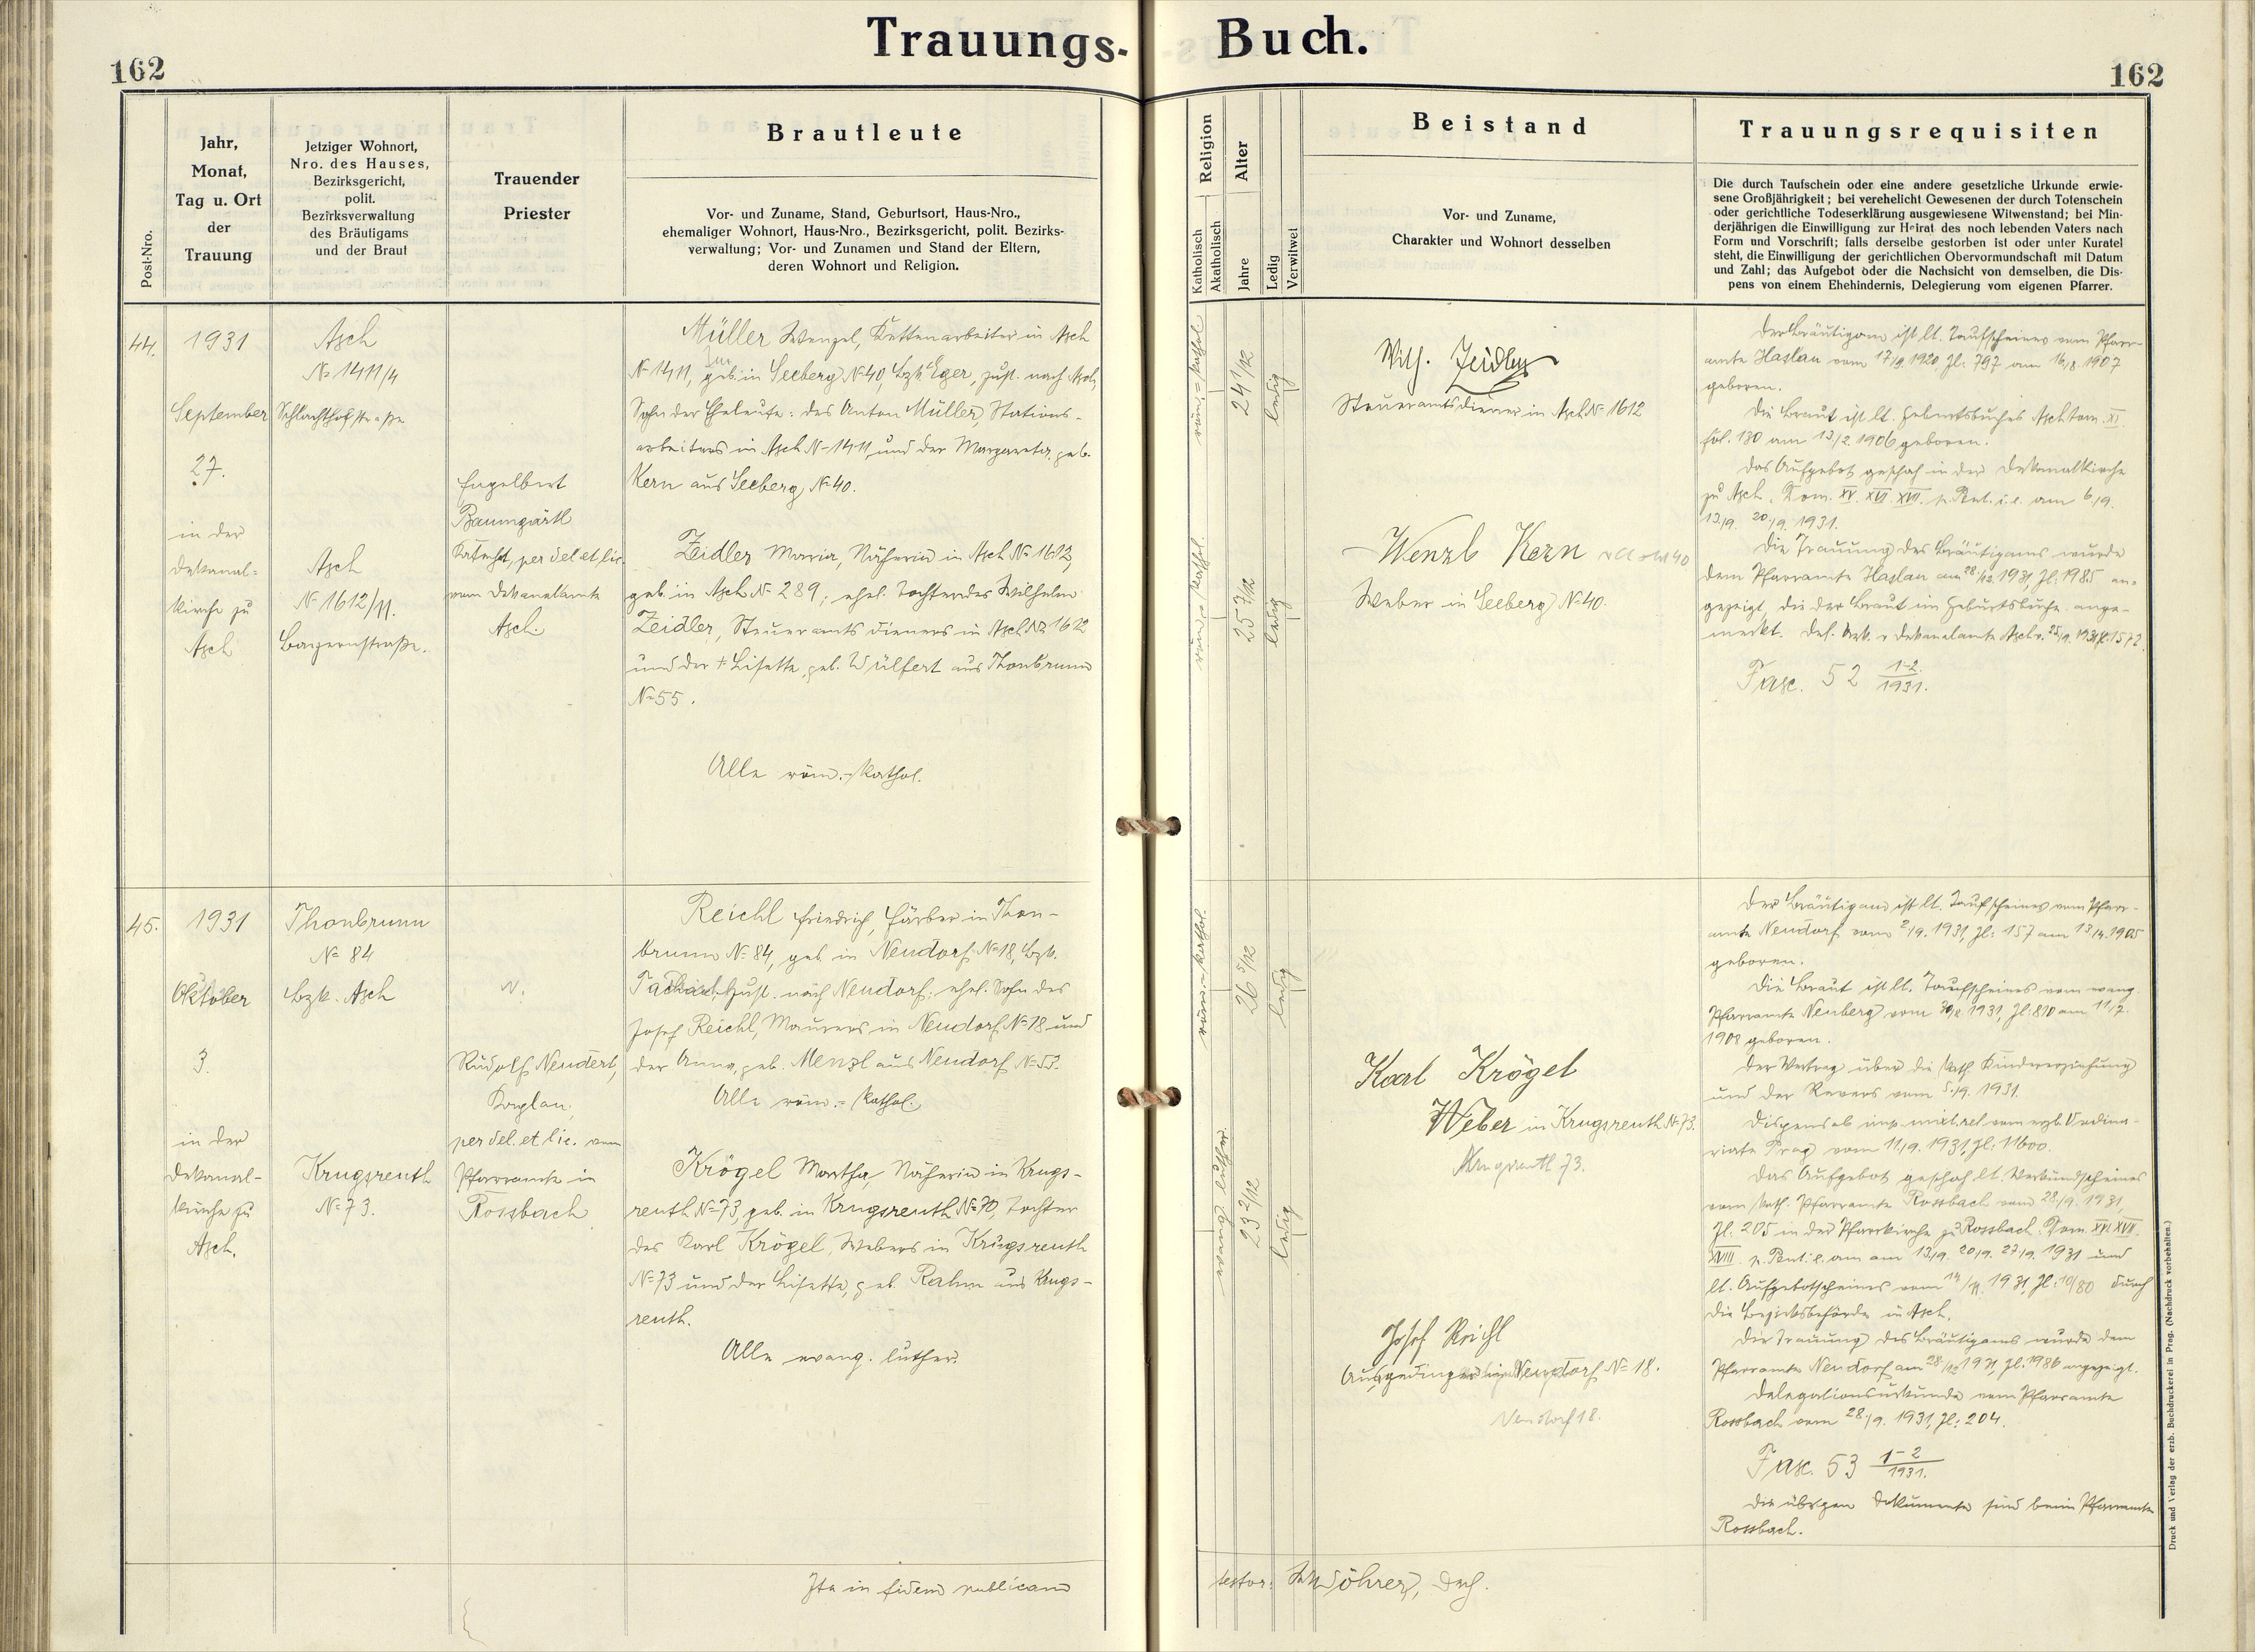 Trauungs-Buch.
162
162
Post-Nro.
Jahr,
Monat,
Tag u. Ort
der
Trauung
Jetziger Wohnort,
Nro. des Hauses,
Bezirksgericht,
polit.
Bezirksverwaltung
des Bräutigams
und der Braut
Trauender
Priester
Brautleute
Vor- und Zuname, Stand, Geburtsort, Haus-Nro.,
ehemaliger Wohnort, Haus-Nro., Bezirksgericht, polit. Bezirks-
verwaltung; Vor- und Zunamen und Stand der Eltern,
deren Wohnort und Religion.
Religion
Katholisch
Akatholisch
Alter
Jahre
Ledig
Verwitwet
Beistand
Vor- und Zuname,
Charakter und Wohnort desselben
Trauungsrequisiten
Die durch Taufschein oder eine andere gesetzliche Urkunde erwie-
sene Großjährigkeit; bei verehelicht Gewesenen der durch Totenschein
oder gerichtliche Todeserklärung ausgewiesene Witwenstand; bei Min-
derjährigen die Einwilligung zur Heirat des noch lebenden Vaters nach
Form und Vorschrift; falls derselbe gestorben ist oder unter Kuratel
steht, die Einwilligung der gerichtlichen Obervormundschaft mit Datum
und Zahl; das Aufgebot oder die Nachsicht von demselben, die Dis-
pens von einem Ehehindernis, Delegierung vom eigenen Pfarrer.
44.
1931
September
27.
in der
Dekanal-
kirche zu
Asch
Asch
№ 1411/4
Schlachthofstraße
Asch
№ 1612/11.
Bayernstraße.
Engelbert
Baumgärtl
Katechet, per del et lic.
vom Dekanalamte
Asch.
Müller Wenzel, Kettenarbeiter in Asch
№ 1411, geb. in Seeberg № 40, Bzk Eger, zust. nach Asch,
Sohn der Eheleute: des Anton Müller, Stations-
arbeiters in Asch № 1411, und der Margareta, geb.
Kern aus Seeberg № 40.
Zeidler Maria, Näherin in Asch № 1612,
geb. in Asch № 289; ehel. Tochter des Wilhelm
Zeidler, Steueramtsdieners in Asch № 1612
und der † Lisette, geb. Wülfert aus Thonbrunn
№ 55.
Alle röm.-kathol.
röm.-kathol
24 1/12
ledig
röm.-kathol.
25 7/12
ledig
Wilh. Zeidler
Steueramtsdiener in Asch № 1612
Wenzl Kern
Weber in Seeberg № 40.
Der Bräutigam ist lt. Taufscheines vom Pfarr-
amte Haslau vom 17/9. 1920, Zl: 797 am 16/8. 1907
geboren.
Die Braut ist lt. Geburtsbuches Asch tom. XI
fol. 180 am 13/2. 1906 geboren.
Das Aufgebot geschah in der Dekanalkirche
zu Asch, Dom. XV. XVI. XVII. p. Pent. i.e. am 6/9.
13/9. 20/9. 1931.
Die Trauung des Bräutigams wurde
dem Pfarramte Haslau am 28/12. 1931, Zl: 1985 an-
gezeigt, die der Braut im Geburtsbuche ange-
merkt.
Fasc. 52 1-2/1931.
45.
1931
Oktober
3.
in der
Dekanal-
kirche zu
Asch.
Thonbrunn
№ 84
Bzk. Asch
Krugsreuth
№ 73.
Rudolf Neudert,
Kaplan,
per del. et lic. vom
Pfarramte in
Rossbach
Reichl Friedrich, Färber in Thon-
brunn № 84, geb. in Neudorf № 18, Bzk.
Tachau, zust. nach Neudorf; ehel. Sohn des
Josef Reichl, Maurers in Neudorf № 18 und
der Anna, geb. Menzl aus Neudorf № 53.
Alle röm.-kathol.
Krögel Martha, Näherin in Krugs-
reuth № 73, geb. in Krugsreuth № 70, Tochter
des Karl Krögel, Webers in Krugsreuth
№ 73 und der Lisette, geb. Rahm aus Krugs-
reuth.
Alle evang. luther.
röm.-kathol.
26 5/12
ledig
evang. luther.
23 2/12
ledig
Karl Krögel
Weber in Krugsreuth № 73.
Krugsreuth 73.
Josef Reichl
Ausgedinger in Neudorf № 18.
Neudorf 18.
Der Bräutigam ist lt. Taufscheines vom Pfarr-
amte Neudorf vom 2/9. 1931, Zl: 157 am 13/4. 1905
geboren.
Die Braut ist lt. Taufscheines vom evang.
Pfarramte Neuberg vom 1931, Zl: 810 am 11/7.
1908 geboren.
Der Vertrag über die kath. Kindererziehung
und der Revers vom 5./9. 1931.
Dispens ab imp. mixt. rel vom erzb. Ordina-
riate Prag vom 11/9. 1931, Zl: 11600.
Das Aufgebot geschah lt. Verkündscheines
vom kath. Pfarramte Rossbach vom 28./9. 1931,
Zl. 205 in der Pfarrkirche zu Rossbach. Dom. XVI. XVII.
XVIII. p. Pent. i.e. am 13/9. 20/9. 27/9. 1931 und
lt. Aufgebotscheines vom 1931, Zl: 10/80 durch
die Bezirksbehörde in Asch.
Die Trauung des Bräutigams wurde dem
Pfarramte Neudorf am 28/12 1931, Zl: 1986 angezeigt.
Delegationsurkunde vom Pfarramte
Rossbach vom 28./9. 1931, Zl: 204.
Fasc. 53 1-2/1931.
Die übrigen Dokumente sind beim Pfarramte
Rossbach.
Ita in fidem publicam
testor:
Druck und Verlag der erzb. Buchdruckerei in Prag. (Nachdruck vorbehalten.)